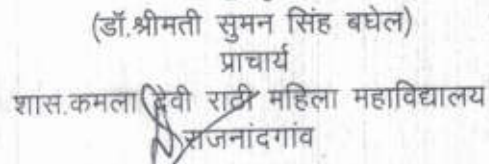 (डॉ.श्रीमती सुमन सिंह बघेल)
प्राचार्य
शास.कमला देवी राठी महिला महाविद्यालय
राजनांदगांव